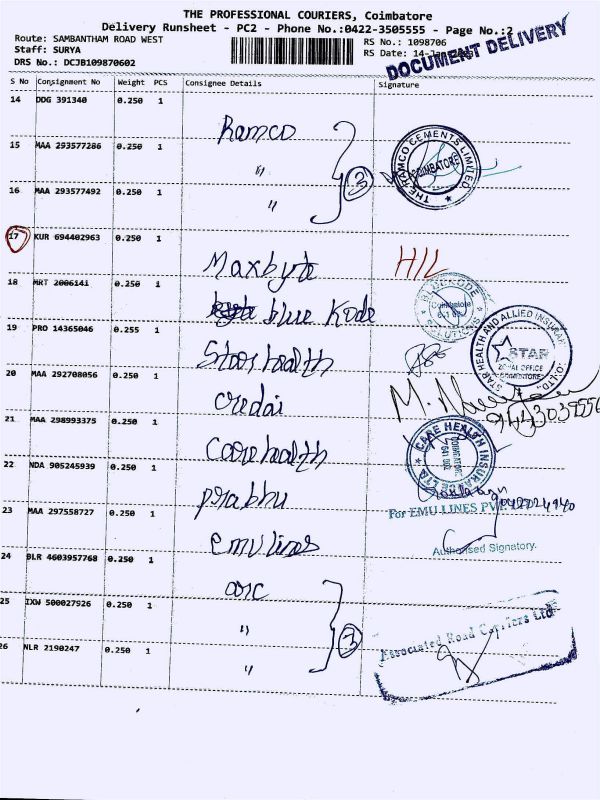 THE PROFESSIONAL COURIERS, Coimbatore
Delivery Runsheet - PC2 - Phone No.:0422-3505555 - Page No.:2
Route: SAMBANTHAM ROAD WEST
RS No.: 1098706
Staff: SURYA
RS Date: 14-Jan
DRS No.: DCJB109870602
DOCUMENT DELIVERY
S No Consignment No Weight PCS Consignee Details Signature
14 DDG 391340 0.250 1 Ramco
15 MAA 293577286 0.250 1 "
16 MAA 293577492 0.250 1 "
3
THE RAMCO CEMENTS LIMITED
COIMBATORE
17 KUR 694402963 0.250 1 Maxbyte H/L
18 MRT 2006141 0.250 1 blue Kode
BLUE KODE SOLUTIONS
Coimbatore
19 PRO 14365046 0.255 1 Star health
STAR HEALTH AND ALLIED INSURANCE CO.LTD.
STAR
ZONAL OFFICE
COIMBATORE
20 MAA 292708056 0.250 1 credai
21 MAA 298993375 0.250 1 Care health
CARE HEALTH INSURANCE LTD
22 NDA 905245939 0.250 1 prabhu
23 MAA 297558727 0.250 1 emu lines
For EMU LINES PV
Authorised Signatory.
24 BLR 4603957768 0.250 1 arc
25 IXW 500027926 0.250 1 "
26 NLR 2190247 0.250 1 "
3
Associated Road Carriers Ltd